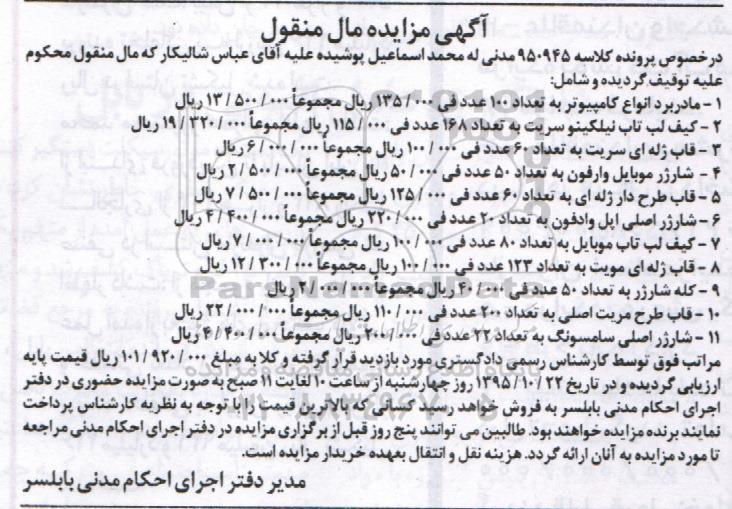 آگهی مزایده مال منقول
درخصوص پرونده کلاسه ۹۵۰۹۴۵ مدنی له محمد اسماعیل پوشیده علیه آقای عباس شالیکار که مال منقول محکوم
علیه توقیف گردیده و شامل:
۱ - مادربرد انواع کامپیوتر به تعداد ۱۰۰ عدد فی ۱۳۵/۰۰۰ ریال مجموعاً ۱۳/۵۰۰/۰۰۰ ریال
۲ - کیف لب تاب نیلکینو سریت به تعداد ۱۶۸ عدد فی ۱۱۵/۰۰۰ ریال مجموعاً ۱۹/۳۲۰/۰۰۰ ریال
۳ - قاب ژله ای سریت به تعداد ۶۰ عدد فی ۱۰۰/۰۰۰ ریال مجموعاً ۶/۰۰۰/۰۰۰ ریال
۴ - شارژر موبایل وارفون به تعداد ۵۰ عدد فی ۵۰/۰۰۰ ریال مجموعاً ۲/۵۰۰/۰۰۰ ریال
۵ - قاب طرح دار ژله ای به تعداد ۶۰ عدد فی ۱۲۵/۰۰۰ ریال مجموعاً ۷/۵۰۰/۰۰۰ ریال
۶ - شارژر اصلی اپل وادفون به تعداد ۲۰ عدد فی ۲۲۰/۰۰۰ ریال مجموعاً ۴/۴۰۰/۰۰۰ ریال
۷ - کیف لب تاب موبایل به تعداد ۸۰ عدد فی ۱۰۰/۰۰۰ ریال مجموعاً ۷/۰۰۰/۰۰۰ ریال
۸ - قاب ژله ای مویت به تعداد ۱۲۳ عدد فی ۱۰۰/۰۰۰ ریال مجموعاً ۱۲/۳۰۰/۰۰۰ ریال
۹ - کله شارژر به تعداد ۵۰ عدد فی ۴۰/۰۰۰ ریال مجموعاً ۲/۰۰۰/۰۰۰ ریال
۱۰ - قاب طرح مریت اصلی به تعداد ۲۰۰ عدد فی ۱۱۰/۰۰۰ ریال مجموعاً ۲۲/۰۰۰/۰۰۰ ریال
۱۱ - شارژر اصلی سامسونگ به تعداد ۲۲ عدد فی ۲۰۰/۰۰۰ ریال مجموعاً ۴/۴۰۰/۰۰۰ ریال
مراتب فوق توسط کارشناس رسمی دادگستری مورد بازدید قرار گرفته و کلا به مبلغ ۱۰۱/۹۲۰/۰۰۰ ریال قیمت پایه
ارزیابی گردیده و در تاریخ ۱۳۹۵/۱۰/۲۲ روز چهارشنبه از ساعت ۱۰ لغایت ۱۱ صبح به صورت مزایده حضوری در دفتر
اجرای احکام مدنی بابلسر به فروش خواهد رسید کسانی که بالاترین قیمت را با توجه به نظریه کارشناس پرداخت
نمایند برنده مزایده خواهند بود. طالبین می توانند پنج روز قبل از برگزاری مزایده در دفتر اجرای احکام مدنی مراجعه
تا مورد مزایده به آنان ارائه گردد. هزینه نقل و انتقال بعهده خریدار مزایده است.
مدیر دفتر اجرای احکام مدنی بابلسر
ParsNamadData